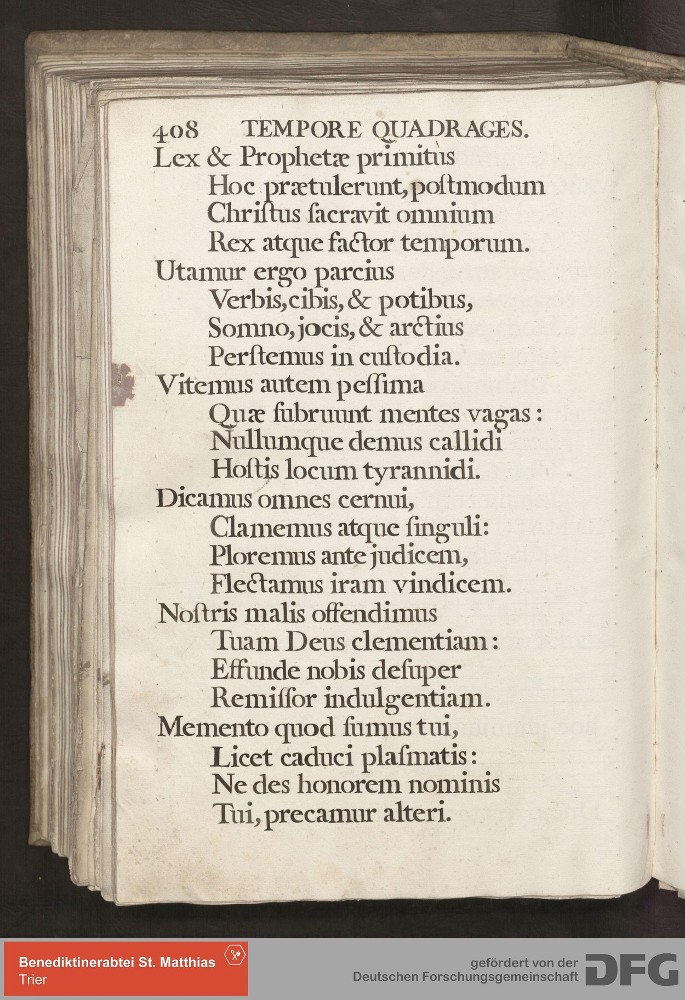 408 TEMPORE QUADRAGES.
Lex & Prophetæ primitùs
Hoc prætulerunt, poſtmodum
Chriſtus ſacravit omnium
Rex atque factor temporum.
Utamur ergo parcius
Verbis, cibis, & potibus,
Somno, jocis, & arctius
Perſtemus in cuſtodia.
Vitemus autem peſſima
Quæ ſubruunt mentes vagas:
Nullumque demus callidi
Hoſtis locum tyrannidi.
Dicamus omnes cernui,
Clamemus atque ſinguli:
Ploremus ante judicem,
Flectamus iram vindicem.
Noſtris malis offendimus
Tuam Deus clementiam:
Effunde nobis deſuper
Remiſſor indulgentiam.
Memento quod ſumus tui,
Licet caduci plaſmatis:
Ne des honorem nominis
Tui, precamur alteri.
Benediktinerabtei St. Matthias
Trier
gefördert von der
Deutschen Forschungsgemeinschaft
DFG